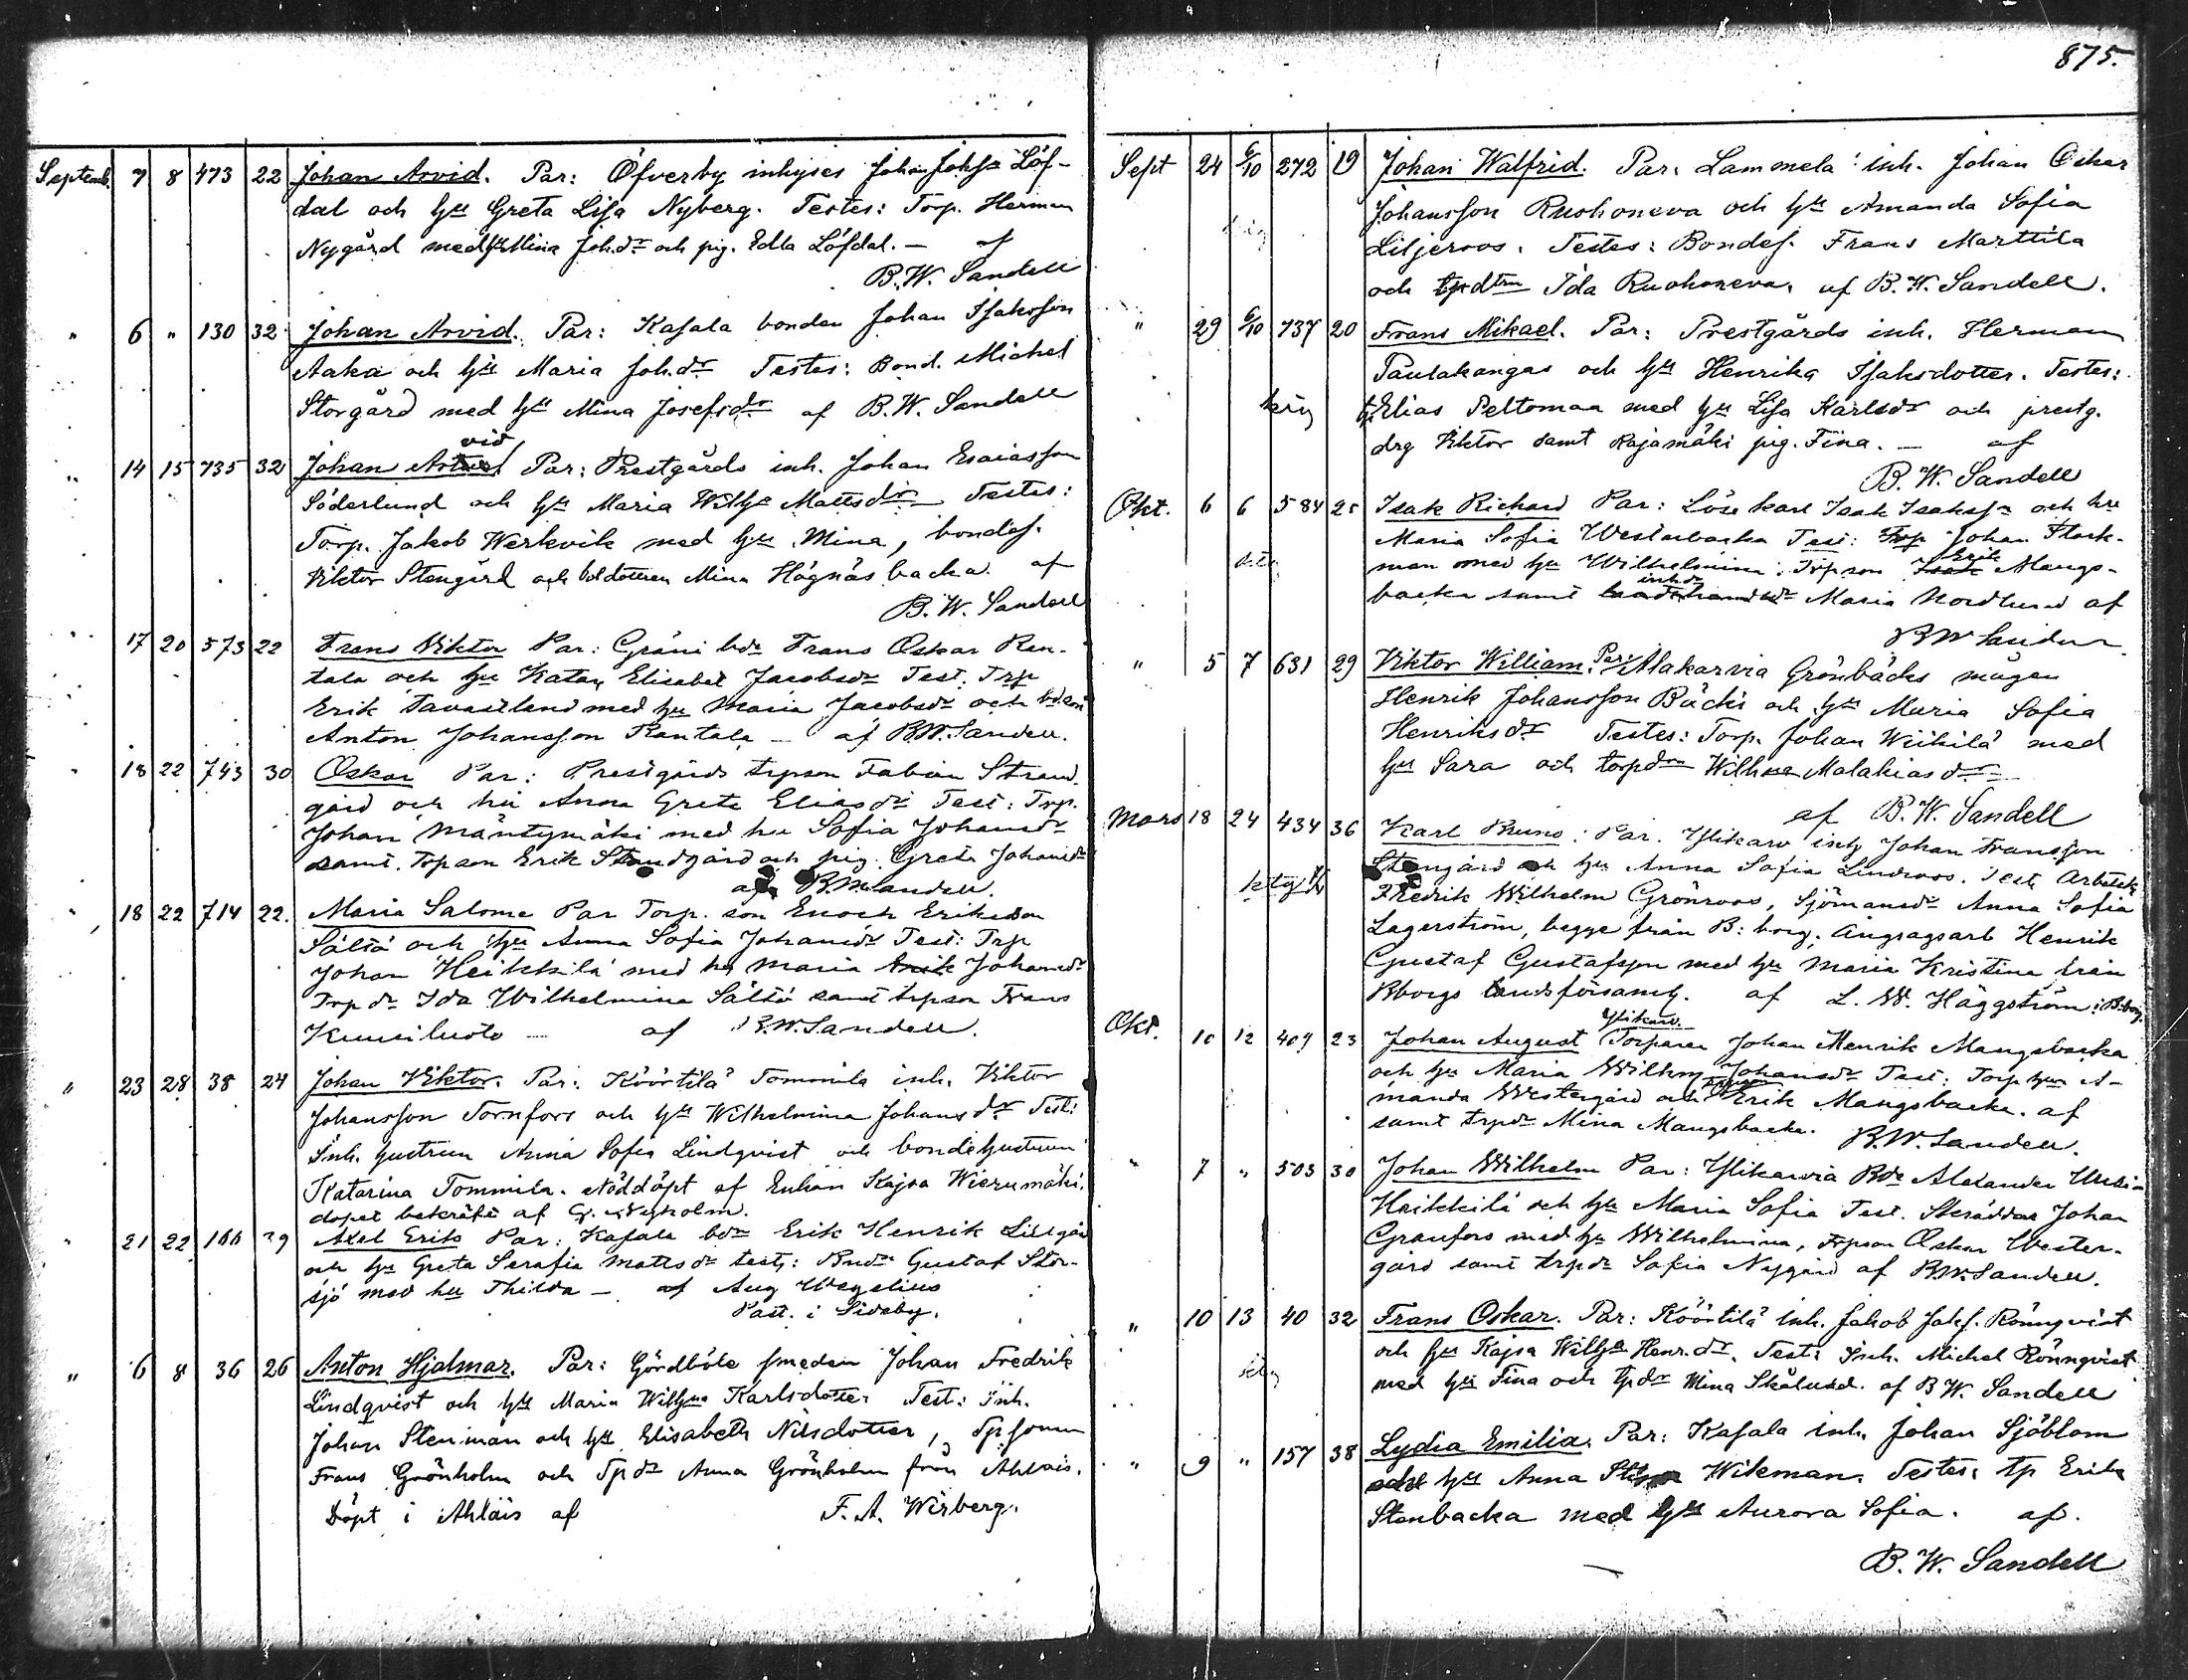 875.
Septemb. 7 8 473 22 Johan Arvid. Par: Öfverby inhyses Johan Johsn Löf-
dal och hu Greta Lisa Nyberg. Testes: Torp. Herman
Nygård med hu Mina Joh.dr och pig. Edla Löfdal. — af
B. W. Sandell
" 6 " 130 32 Johan Arvid. Par: Kasala bonden Johan Isaksson
Aaka och hu Maria Joh.dr Testes: Bond. Michel
Storgård med hu Mina Josefsdr af B. W. Sandell
vid
" 14 15 735 32 Johan Par: Prestgårds inh. Johan Esaiasson
Söderlund och hu Maria Wilhna Mattsdr — Testes:
Torp. Jakob Werkvik med hu Mina, bondes.
Viktor Stengård och bd.dottern Mina Högnäsbacka af
B. W. Sandell
" 17 20 573 22 Frans Viktor Par: Gräni bdn Frans Oskar Ran-
tala och hu Katar. Elisabet Jacobsdr Test: Trp
Erik Tavastland med hu Maria Jacobsdr och bdson
Anton Johansson Rantala — af B. W. Sandell.
" 18 22 743 30 Oskar Par: Prestgårds trpson Fabian Strand
gård och hu Anna Greta Eliasdr Test: Trp.
Johan Mäntymäki med hu Sofia Johansdr
samt. Trpson Erik Strandgård och pig. Greta Johansdr
af B. W. Sandell.
" 18 22 714 22. Maria Salome Par Torp. son Enoch Eriksson
Sältö och hu Anna Sofia Johansdr Test: Trp
Johan Heikkilä med hu Maria Johansdr
Trpdr Ida Wilhelmina Sältö samt trpson Frans
Kuusiluoto — af B. W. Sandell.
" 23 28 38 24 Johan Viktor. Par: Köörtilä Tommila inh. Viktor
Johansson Tornfors och hu Wilhelmina Johansdr Test:
Inh. hustrun Anna Sofia Lindqvist och bondehustrun
Katarina Tommila. Nöddöpt af Enkan Kajsa Wierumäki.
dopet bekräft af G. Nyholm.
" 21 22 166 29 Axel Erik Par: Kasala bdn Erik Henrik Lillgård
och hu Greta Serafia Mattsdr test: Bndn Gustaf Stor-
sjö med hu Thilda — af Aug Wegelius
Past. i Sideby.
" 6 8 36 26 Anton Hjalmar. Par: Gårdböle smeden Johan Fredrik
Lindqvist och hu Maria Wilhna Karlsdotter Test: Inh.
Johan Stenman och hu Elisabeth Nilsdotter, Tpsonen
Frans Grönholm och Tpdr Anna Grönholm från Ahlais.
Döpt i Ahlais af F. A. Wirberg.
Sept 24 6/10 272 19 Johan Walfrid. Par: Lammela inh. Johan Oskar
Johansson Ruohoneva och hu Amanda Sofia
Liljeroos. Testes: Bondes. Frans Marttila
och tpdtrn Ida Ruohoneva. af B. W. Sandell.
" 29 6/10 737 20 Frans Mikael. Par: Prestgårds inh. Herman
Paulakangas och hu Henrika Isaksdotter. Testes:
Elias Peltomaa med hu Lisa Karlsdr och prestg.
drg Viktor samt Rajamäki pig. Fina. — af
B. W. Sandell
Okt. 6 6 584 25 Isak Richard Par: Löse karl Isak Isakssn och hu
Maria Sofia Westerbacka Test: Trp Johan Stark-
man med hu Wilhelmina. Trpson Erik Mangs-
backa samt inhdr Maria Nordlund af
B W Sandell
" 5 7 631 29 Viktor William. Par: Alakarvia Grönbäcks mågen
Henrik Johansson Bäck och hu Maria Sofia
Henriksdr Testes: Torp. Johan Wiikilä med
hu Sara och torpdrn Wilhna Malakiasdr —
af B. W. Sandell
Mars 18 24 434 36 Karl Bruno: Par. Ylikarv inh Johan Fransson
Stengård och hu Anna Sofia Lindroos. Test Arbetsk
Fredrik Wilhelm Grönroos, Sjömansdr Anna Sofia
Lagerström, begge från B:borg. Ångsågsarb Henrik
Gustaf Gustafsson med hu Maria Kristina från
Bborgs landsförsaml. af L. W. Häggström i B:borg.
Okt. 10 12 409 23 Johan August Ylikarv. Torparen Johan Henrik Mangsbacka
och hu Maria Wilhna Johansdr Test: Torp hun A-
manda Westergård och Trpson Erik Mangsbacka. af
samt trpdr Mina Mangsbacka. B. W. Sandell.
" 7 " 503 30 Johan Wilhelm Par: Ylikarvia Bdn Alexander Uusi-
Heikkilä och hu Maria Sofia Test. Skräddar Johan
Granfors med hu Wilhelmina, trpson Oskar Wester-
gård samt trpdr Sofia Nygård af B. W. Sandell.
" 10 13 40 32 Frans Oskar. Par: Köörtilä inh. Jakob Jaks. Rönnqvist
och hu Kajsa Wilhna Henr.dr. Test: Inh. Michel Rönnqvist
med hu Fina och tpdr Mina Skålund. af B W. Sandell
" 9 " 157 38 Lydia Emilia. Par: Kasala inh. Johan Sjöblom
och hu Anna Wikman. Testes: tp Erik
Stenbacka med hu Aurora Sofia. af.
B. W. Sandell